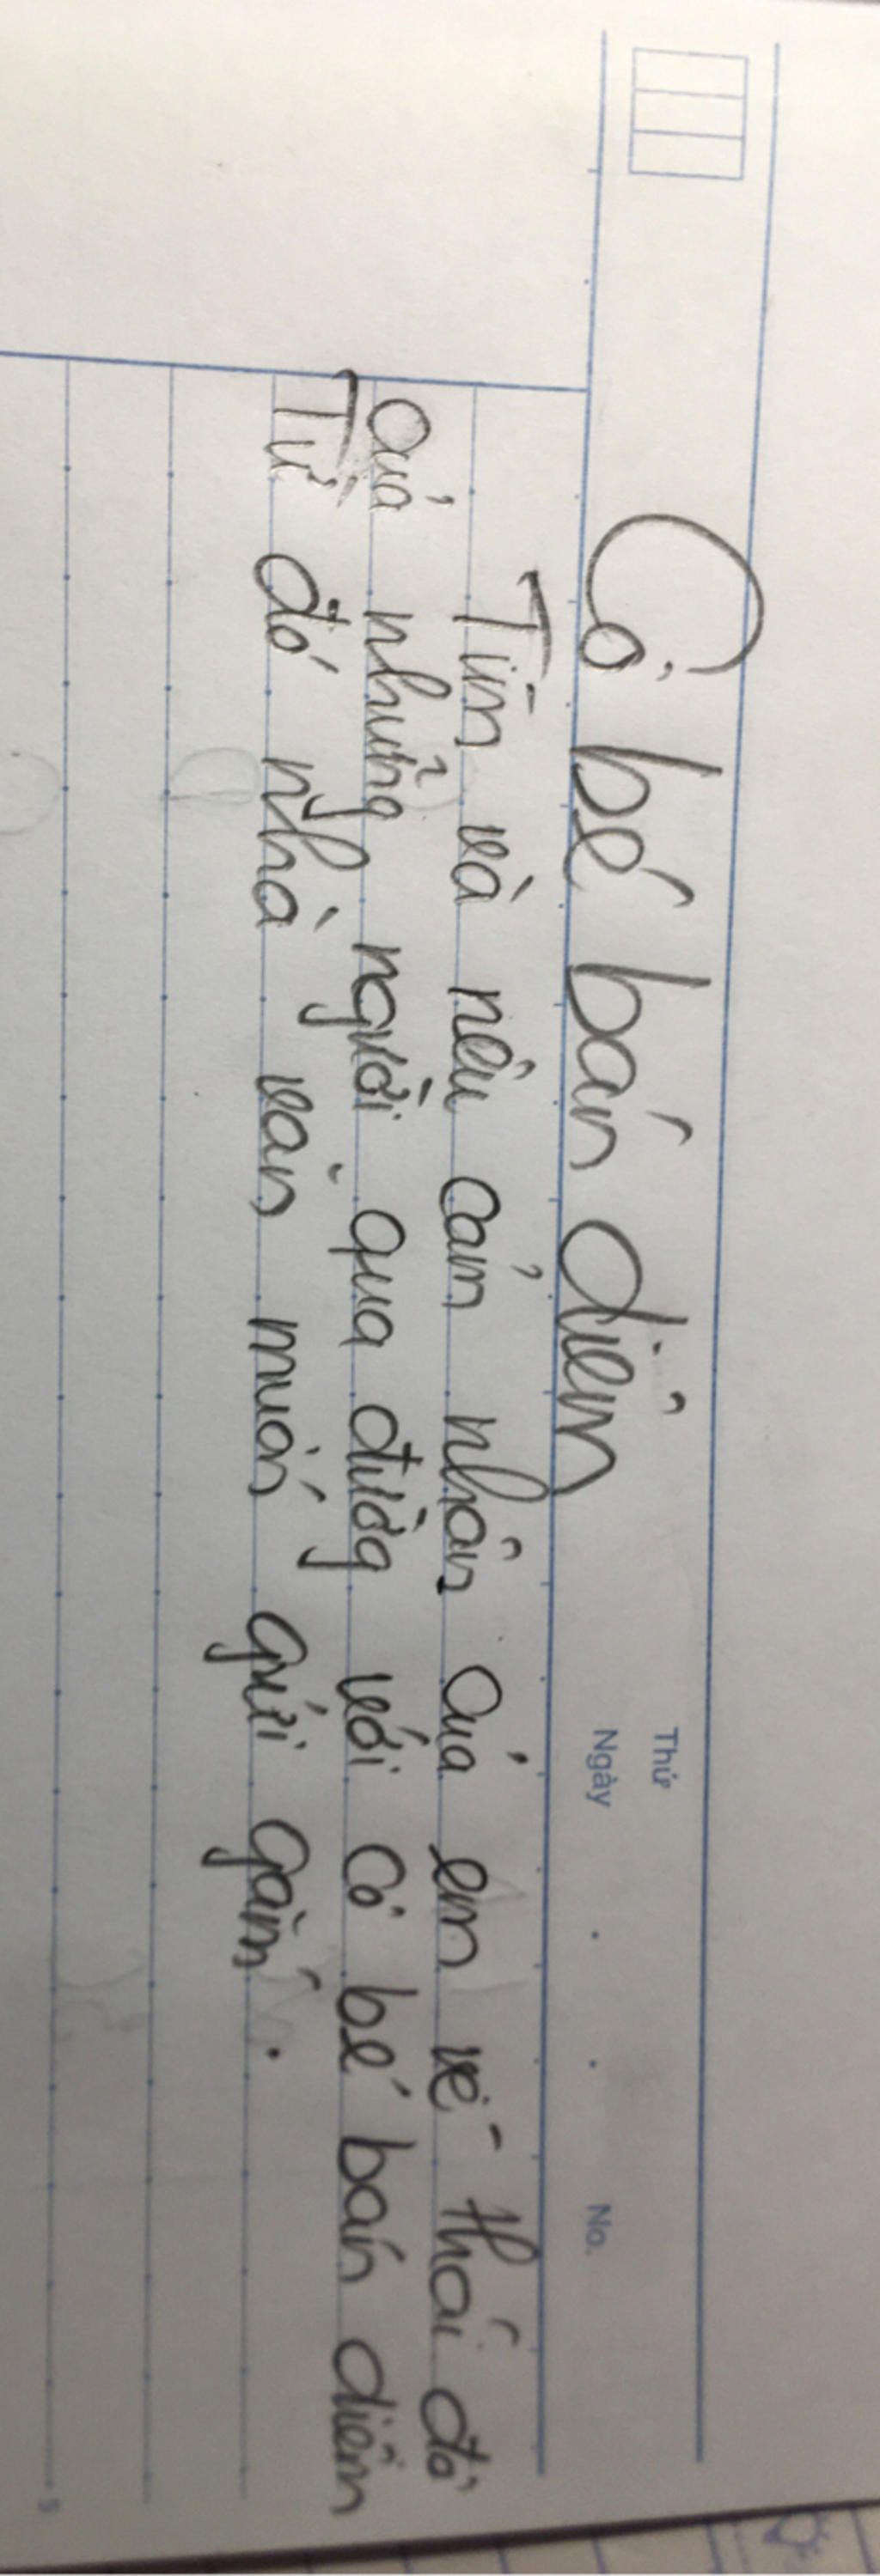 Thứ
Ngày . . No.
Cô bé bán diêm
Tìm và nêu cảm nhận của em về thái độ
của những người qua đường với cô bé bán diêm
Từ đó nhà văn muốn gửi gắm.